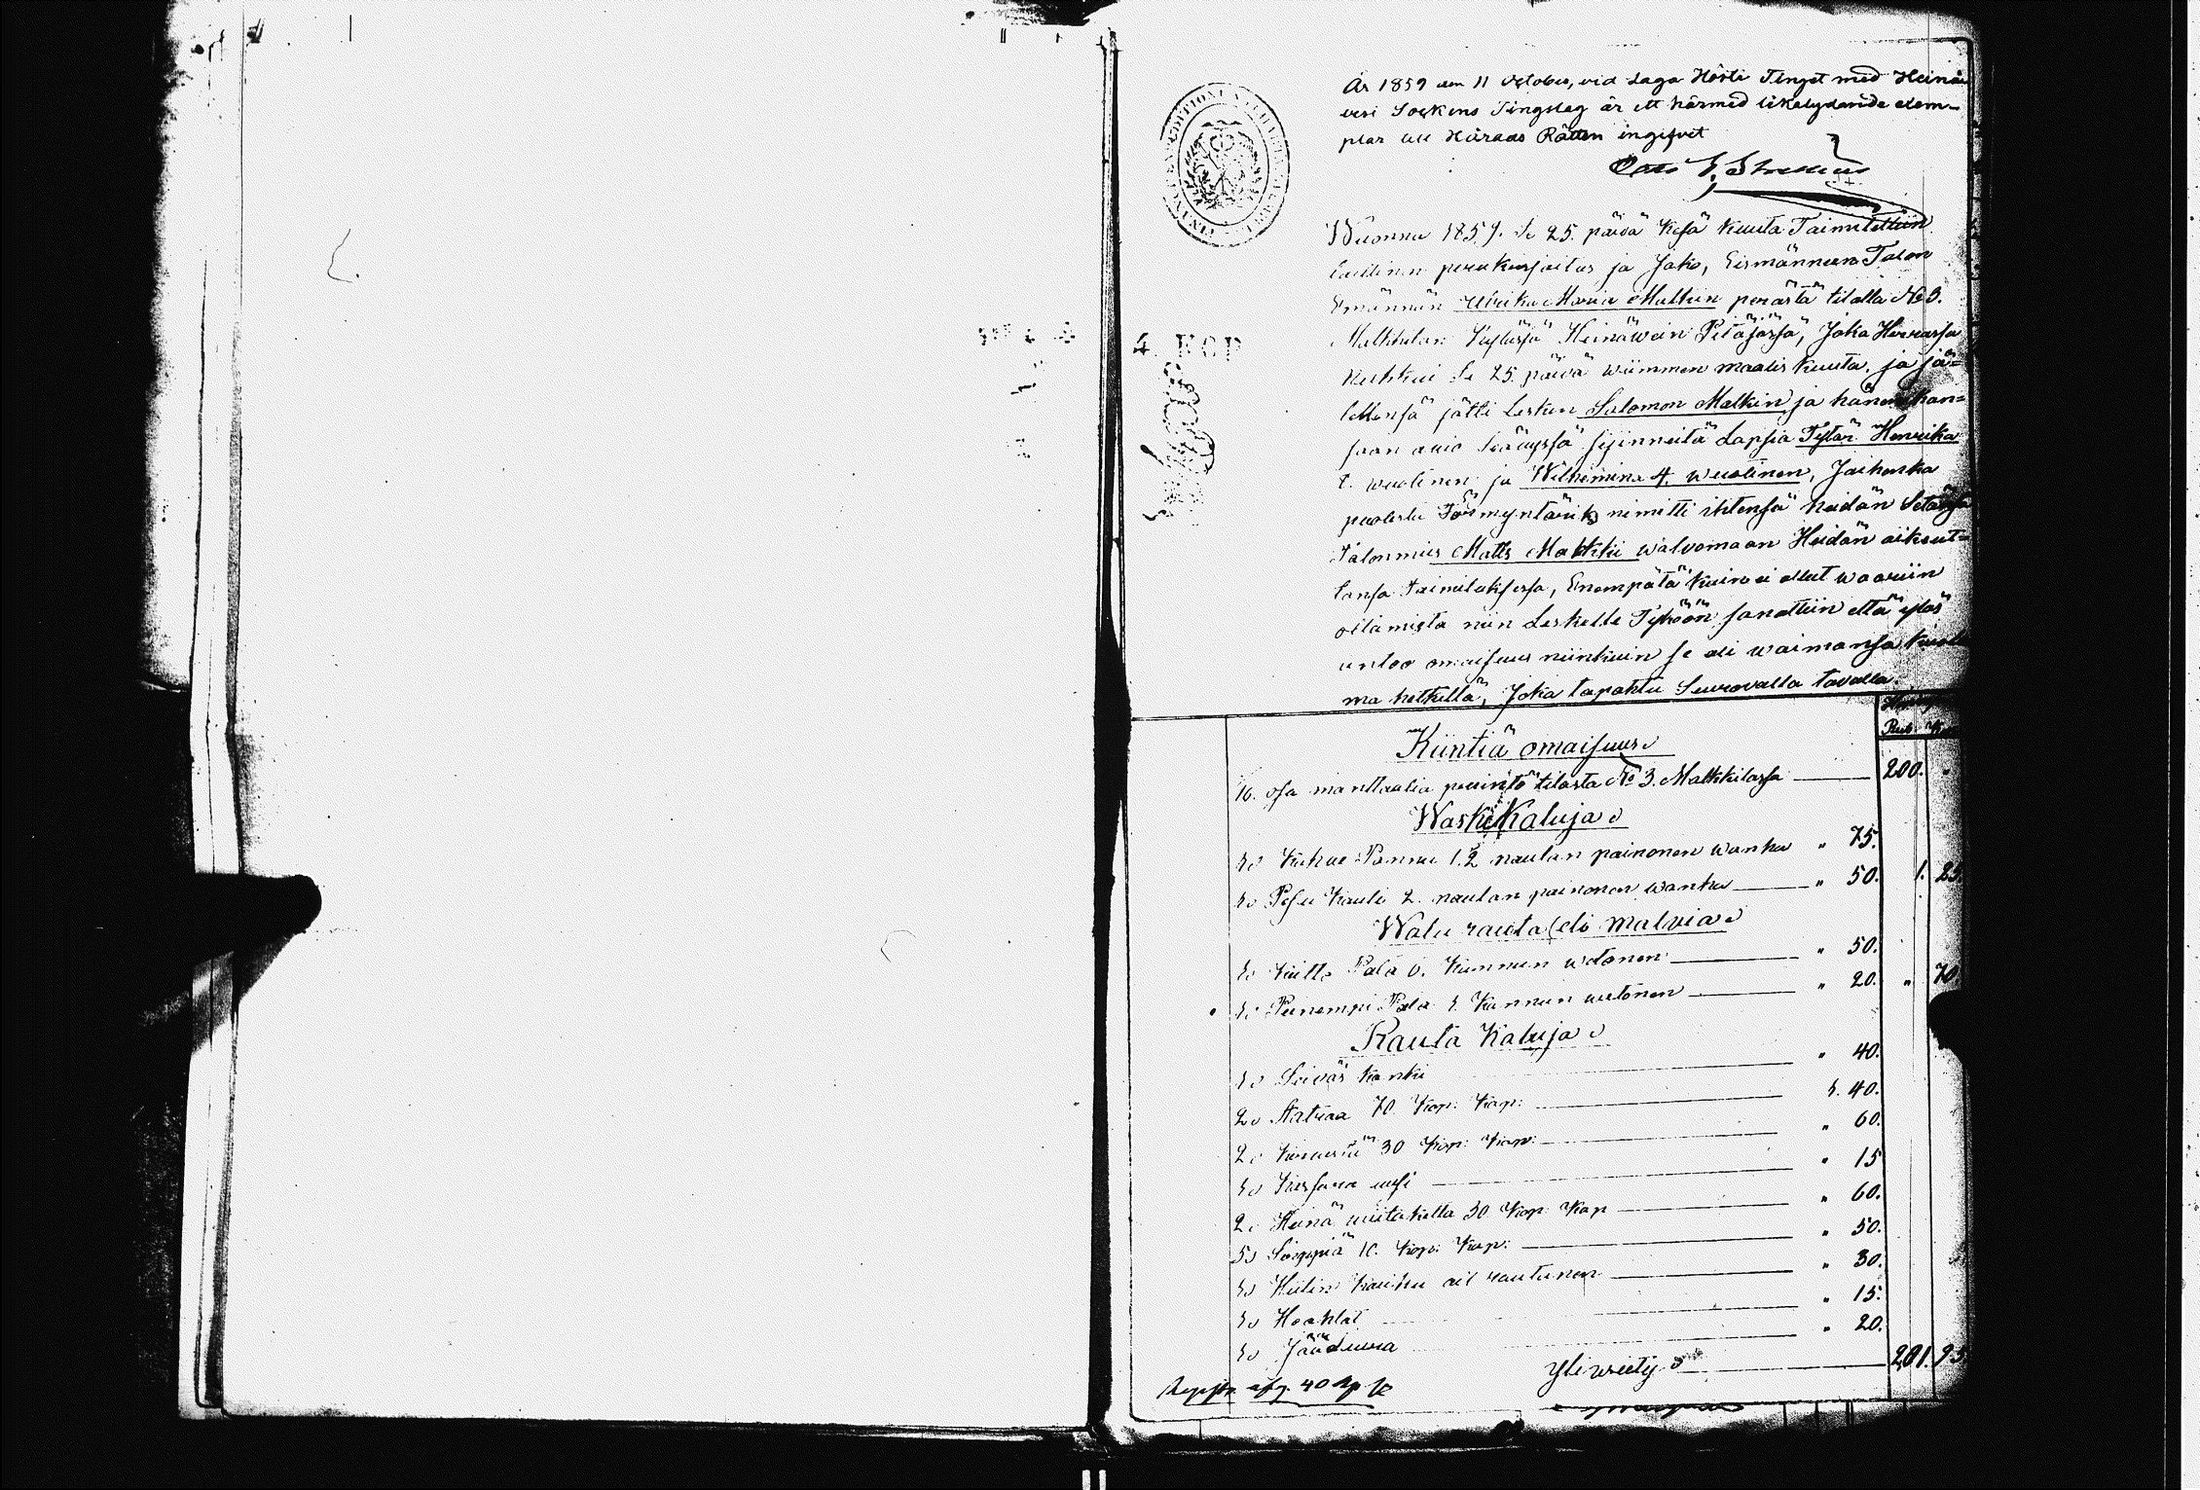 År 1859 den 11 October, vid Laga Höste Tinget med Heinä
vesi Sockens Tingslag är ett härmed likalydande exem-
plar till Härads Rätten ingifvet
Wuonna 1859. Se 25. päivä Kesä kuuta Toimitettiin
Laillinen perukirjoitus ja Jako, Edesmänneen Talon
Emännän Ulrika Maria Malkin perästä tilalla No 3.
Malkkilan Kylässä Heinäwein Pitäjässä, Joka
Se 25. päivä wiimmen maalis kuuta, ja jä=
lkensä jätti Lesken Salomon Malkin ja hänen kan=
saan awio Säädyssä sijinneitä Lapsia Tytär Henrika
wuotinen ja Wilhemina 4. wuotinen, Joihenka
puolesta Förmyntärik nimitti ihtensä heidän Setänsä
Talonmies Matts Malkkii walvomaan Heidän oikeut=
tansa Toimituksessa, Enempätä kuin ei ollut waariin
ottamista niin Leskelle Työhön sanottiin että ylös
antoo omaisuus niinkuin se oli waimonsa kuole
ma hetkellä, Joka tapahtu Seurovalla tavalla.
Rub. Kop
Kiintiä omaisuus
16. osa manttaalia perintö tilasta No 3. Malkkilassa 200. "
Waski Kaluja
1 Kahve Pannu 1.2 naulan painonen wanha " 75.
1 Pesu Kauli 2. naulan painonen wanha " 50. 1. 25
Walu rauta eli Malmia
1 Keitto Pata 6. Kannun wetonen " 50.
1 Pienempi Pata 1. Kannun wetonen " 20. " 70
Rauta Kaluja
1 Seiväs Kanki " 40.
2 Aatraa 70 Kop: Kap: 1. 40.
2 Kirvestä 30 Kop: Kap: " 60.
1 Kirfves uusi " 15
2 Heinä wiitaketta 30 Kop Kap " 60.
5 Sirppiä 10. Kop: Kap: " 50.
1 Hiilin Kauha rautanen " 30.
1 Hoahlat " 15.
1 Jäätuura " 20.
Yli wiety 201. 95
40 Kop